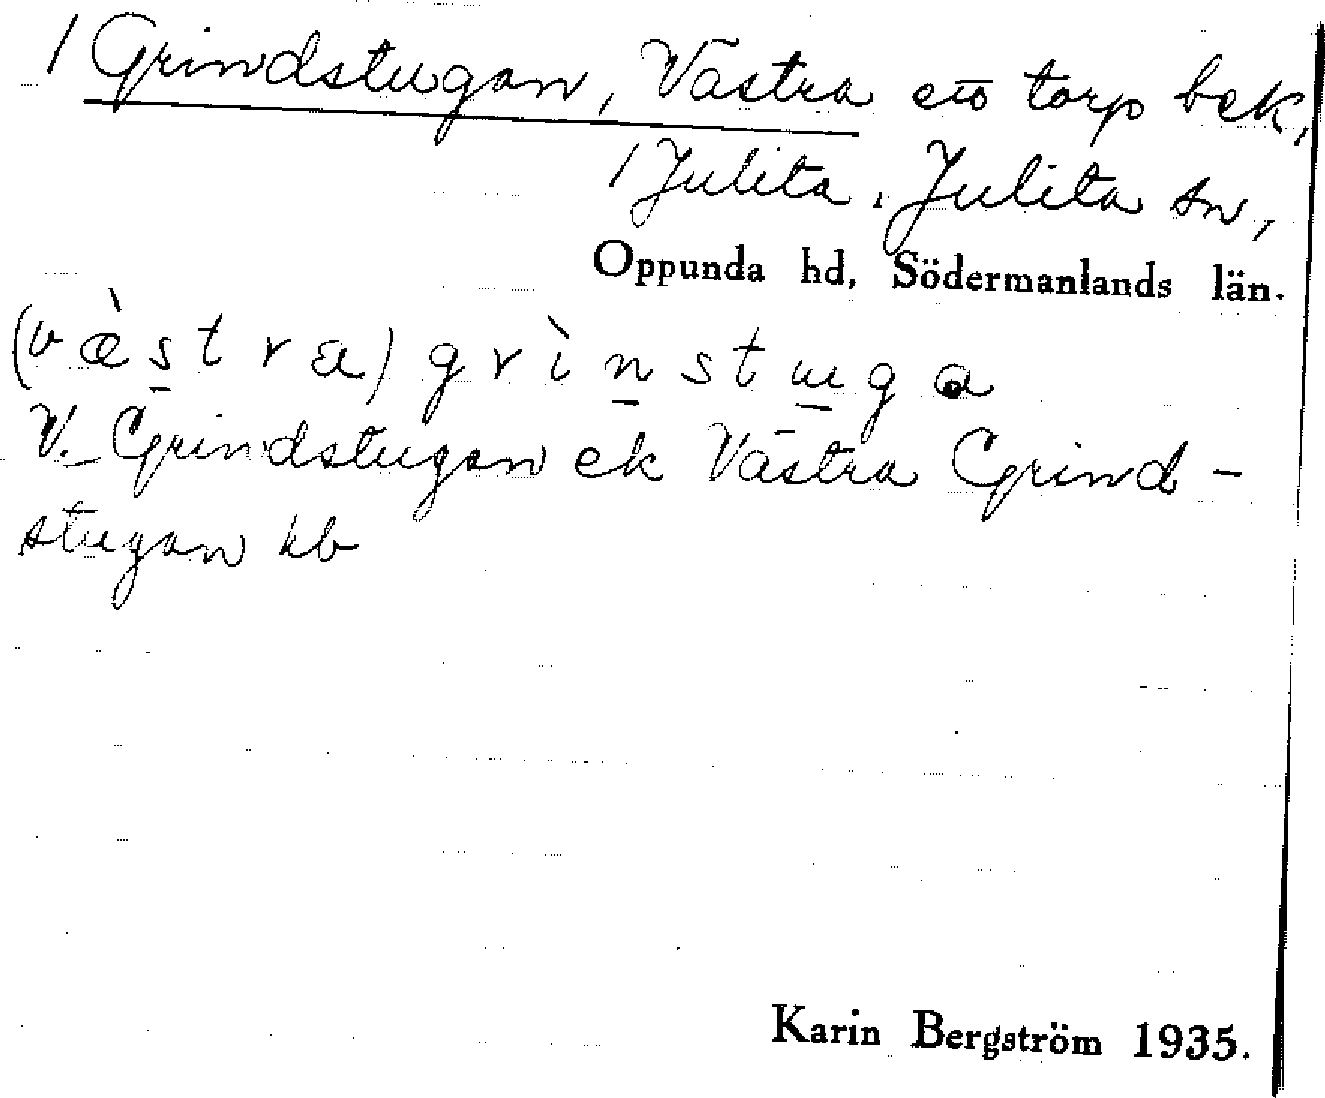 / Grindstugan, Västra eä torp bek,
/ Julita. Julita sn,
Oppunda hd, Södermanlands län.
(væ̀s̲tra) grìn̲stu̲ga
V. Grindstugan ek Västra Grind-
stugan kb
Karin Bergström 1935.